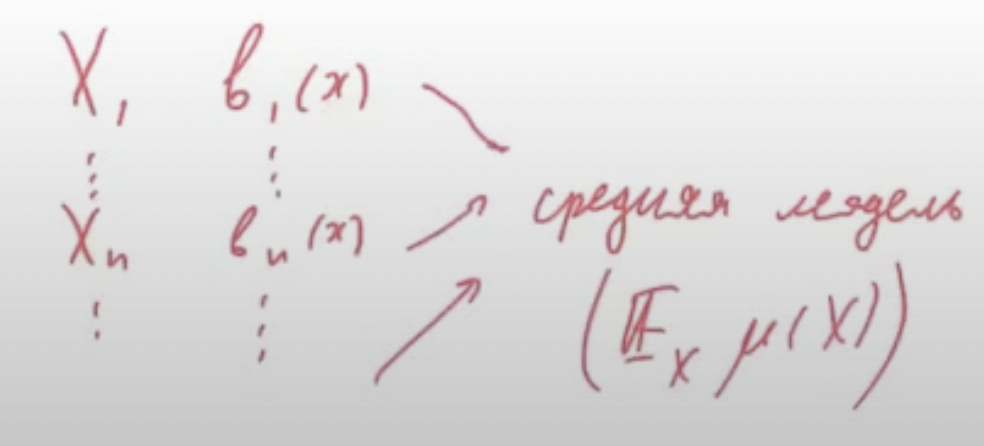 X₁ b₁(x)
⋮ ⋮
Xₙ bₙ(x) средняя модель
⋮ ⋮ (𝔼ₓ μ(X))